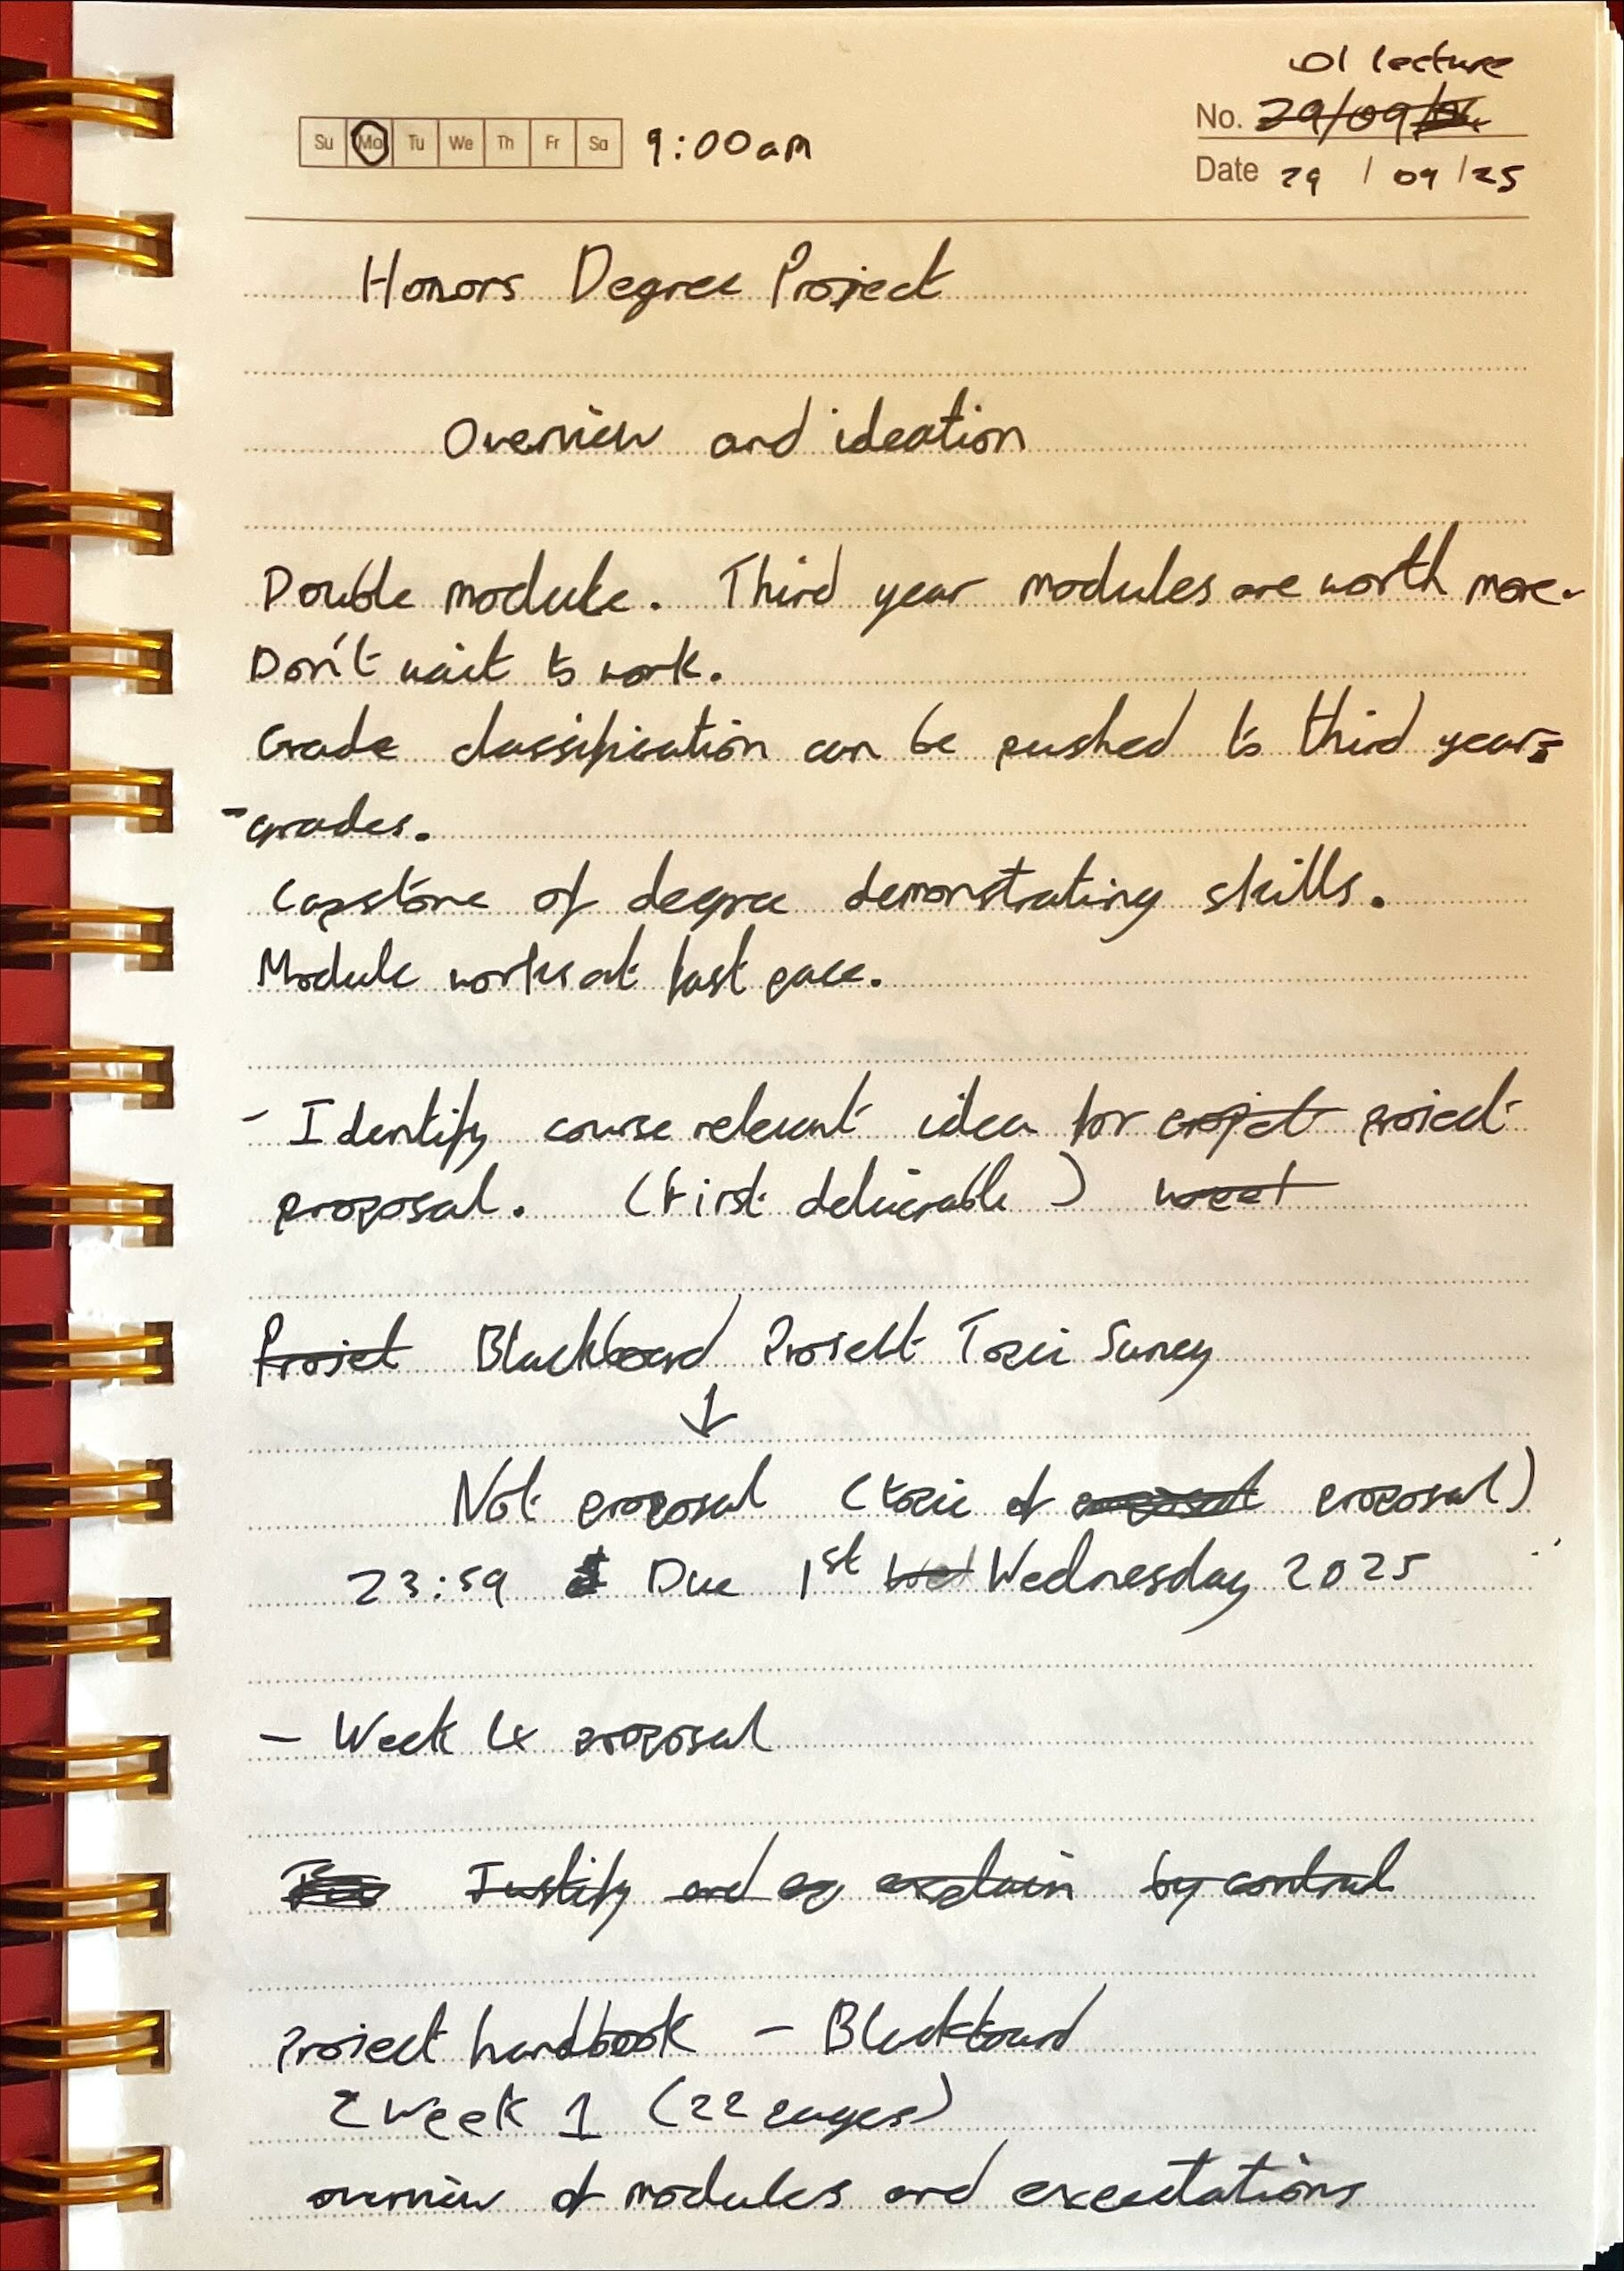 01 lecture
Su Mo Tu We Th Fr Sa 9:00am No. 29/09/
Date 29 / 09 / 25
Honors Degree Project
Overview and ideation
Double module. Third year modules are worth more.
Don't wait to work.
Grade classification can be pushed to third year
-grades.
Capstone of degree demonstrating skills.
Module works at fast pace.
- Identify course relevant idea for project
proposal. (First deliverable)
Projet Blackboard Project Topic Survey
↓
Not proposal (topic of proposal)
23:59 Due 1st Wed Wednesday 2025
- Week 4 proposal
Justify and ex explain by control
Project handbook - Blackboard
Week 1 (22 pages)
overview of modules and expectations